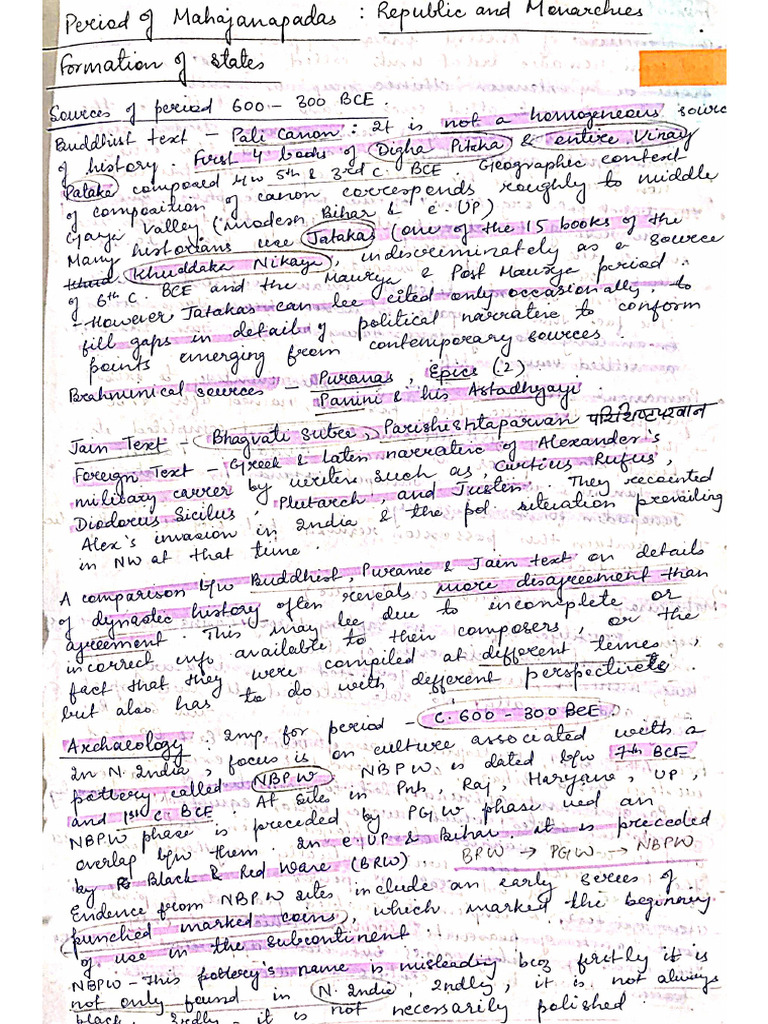 Period of Mahajanapadas : Republic and Monarchies
Formation of states
Sources of period 600 - 300 BCE.
Buddhist text - Pali Canon : It is not a homogeneous source
of history. First 4 books of Digha Pitcka & entire Vinay
Pataka composed b/w 5th & 3rd C. BCE. Geographic context
of composition of canon corresponds roughly to middle
Ganga Valley (modern Bihar & e. UP)
Many historians use Jataka (one of the 15 books of the
Khud Khuddaka Nikaya), indiscriminately as a source
of 6th C. BCE and the Maurya & Post Maurya period.
- However Jatakas can be cited only occasionally to
fill gaps in detail of political narrative to conform
points emerging from contemporary sources.
Brahmnical sources Puranas, Epics (2)
Panini & his Astadhyayi.
Jain Text - Bhagvati Sutra, Parishishtaparvan परिशिष्टपरवान
Foreign Text - Greek & Latin narrative of Alexander's
military carrer by writers such as, Curtius Rufus,
Diodorus Sicilus, Plutarch, and Justin. They recounted
Alex's invasion in India & the pol situation prevailing
in NW at that time.
A comparison b/w Buddhist, Puranic & Jain text on details
of dynastic history often reveals more disagreement than
agreement. This may be due to incomplete or
incorrect info available to their composers, or the
fact that they were compiled at different times,
but also has to do with different perspectives.
Archaeology : Imp. for period - C. 600 - 300 BCE.
In N. India, focus is on culture associated with a
pottery called NBPW. NBPW is dated b/w 7th BCE
and 1st C. BCE. At sites in Pnb, Raj, Haryana, UP,
NBPW phase is preceded by PGW phase and an
overlap b/w them. In e UP & Bihar. it is preceded
by Black & Red Ware (BRW) BRW → PGW → NBPW
Evidence from NBPW sites include an early series of
punched marked coins, which marked the beginning
of use in the subcontinent.
NBPW - This pottery's name is misleading bcz firstly it is
not only found in N. India, 2ndly, it is not always
black, 3rdly it is not necessarily polished.